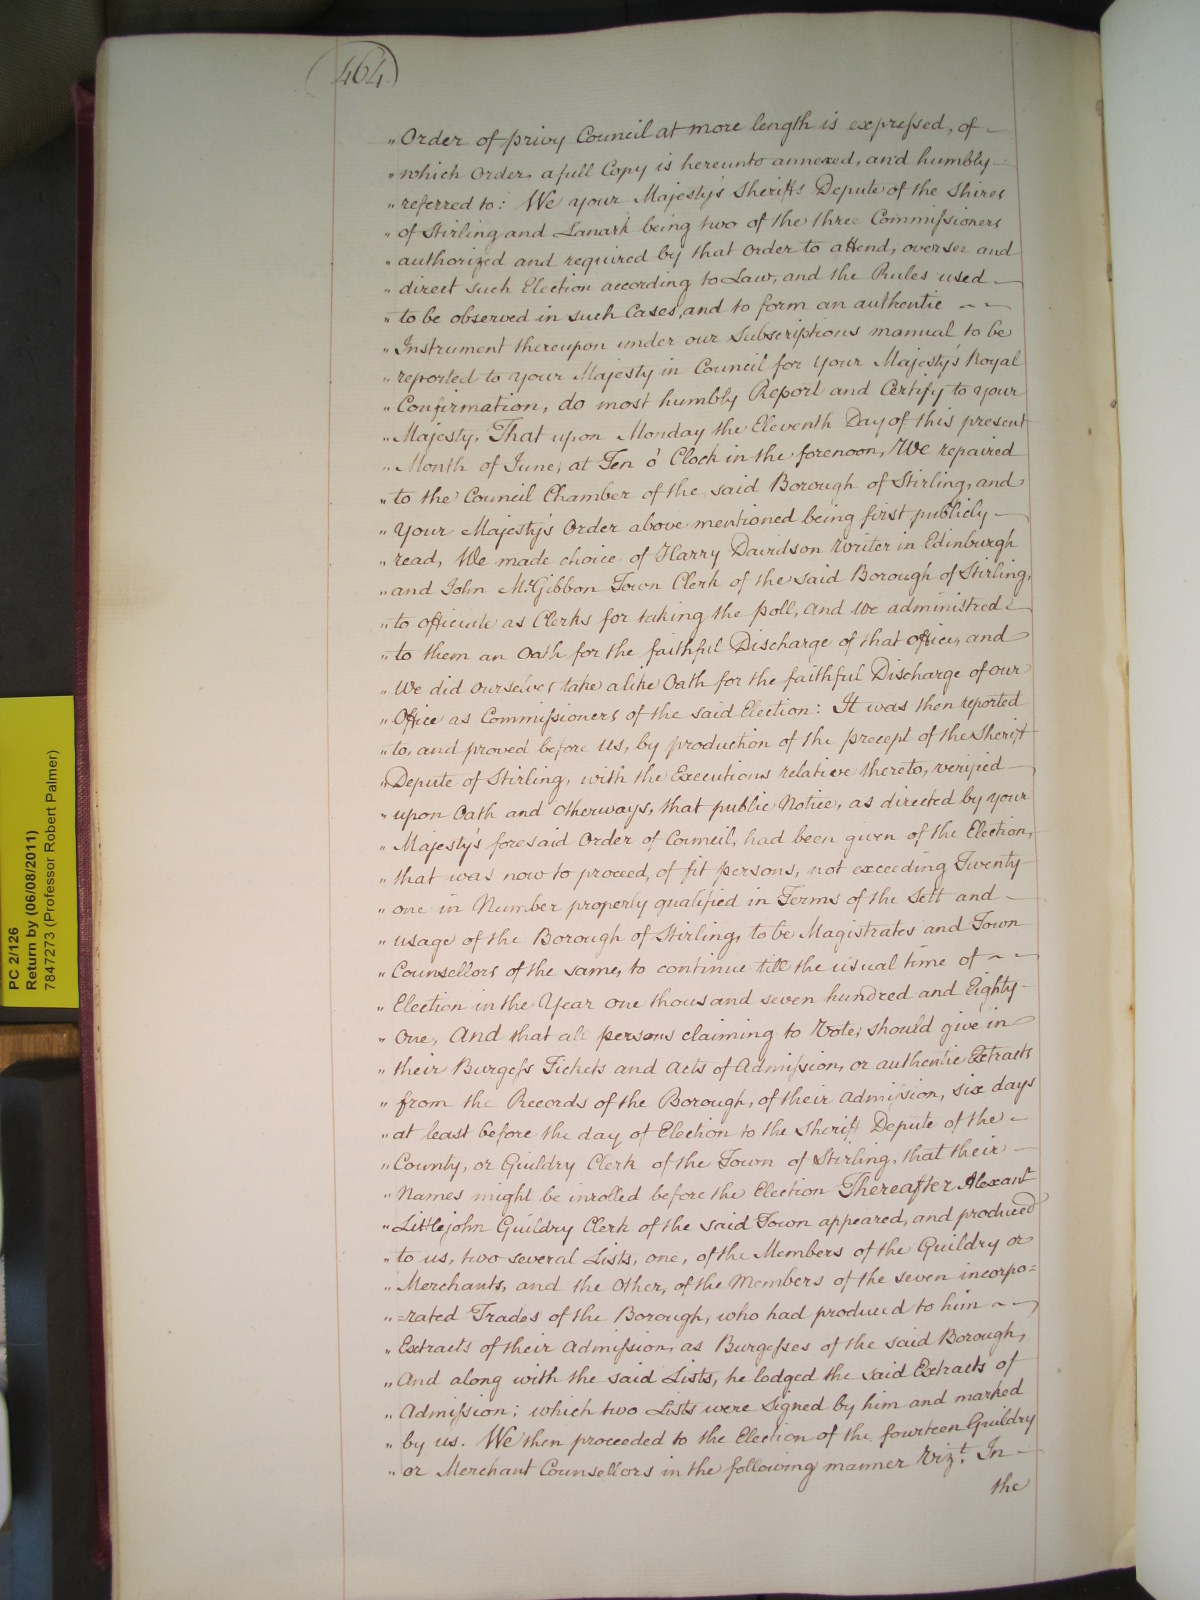 (464)
„ Order of privy Council at more length is expressed, of
„ which Order, a full Copy is hereunto annexed, and humbly
„ referred to: We your Majesty's Sheriffs Depute of the Shires
„ of Stirling and Lanark being two of the three Commissioners
„ authorized and required by that Order to attend, oversee and
„ direct such Election according to Law, and the Rules used
„ to be observed in such Cases, and to form an authentic
„ Instrument thereupon under our Subscriptions manual to be
„ reported to your Majesty in Council for Your Majesty's Royal
„ Confirmation, do most humbly Report and Certify to your
„ Majesty, That upon Monday the Eleventh Day of this present
„ Month of June, at Ten o' Clock in the forenoon, We repaired
„ to the Council Chamber of the said Borough of Stirling, and
„ Your Majesty's Order above mentioned being first publicly
„ read, We made choice of Harry Davidson Writer in Edinburgh
„ and John McGibbon Town Clerk of the said Borough of Stirling,
„ to officiate as Clerks for taking the poll, and we administred
„ to them an Oath for the faithful Discharge of that office, and
„ We did ourselves take alike Oath for the faithful Discharge of our
„ Office as Commissioners of the said Election: It was then reported
„ to, and proved before us, by production of the precept of the Sheriff
„ Depute of Stirling, with the Executions relative thereto, verified
„ upon Oath and otherways, that public Notice, as directed by your
„ Majesty's foresaid Order of Council, had been given of the Election,
„ that was now to proceed, of fit persons, not exceeding Twenty
„ one in Number properly qualified in Terms of the Sett and
„ usage of the Borough of Stirling, to be Magistrates and Town
„ Counsellors of the same, to continue till the usual time of
„ Election in the Year one thousand seven hundred and Eighty
„ One, And that all persons claiming to Vote, should give in
„ their Burgess Tickets and Acts of Admission, or authentic Extracts
„ from the Records of the Borough, of their admission, six days
„ at least before the day of Election to the Sheriff Depute of the
„ County, or Guildry Clerk of the Town of Stirling, that their
„ Names might be inrolled before the Election Thereafter Alexanr
„ Littlejohn Guildry Clerk of the said Town appeared, and produced
„ to us, two several Lists, one, of the Members of the Guildry or
„ Merchants, and the Other, of the Members of the seven incorpo=
„ =rated Trades of the Borough, who had produced to him
„ Extracts of their Admission, as Burgesses of the said Borough,
„ And along with the said Lists, he lodged the said Extracts of
„ Admission; which two Lists were Signed by him and marked
„ by us. We then proceeded to the Election of the fourteen Guildry
„ or Merchant Counsellors in the following manner Vizt. In
the
PC 2/126
Return by (06/08/2011)
7847273 (Professor Robert Palmer)